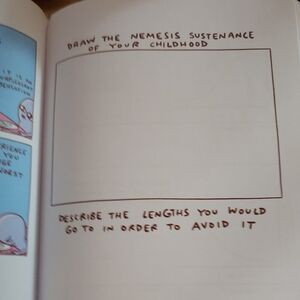 IT IS AN
DRAW THE NEMESIS SUSTENANCE
OF YOUR CHILDHOOD
YOU
WORST
DESCRIBE THE LENGTHS YOU WOULD
GO TO IN ORDER TO AVOID IT